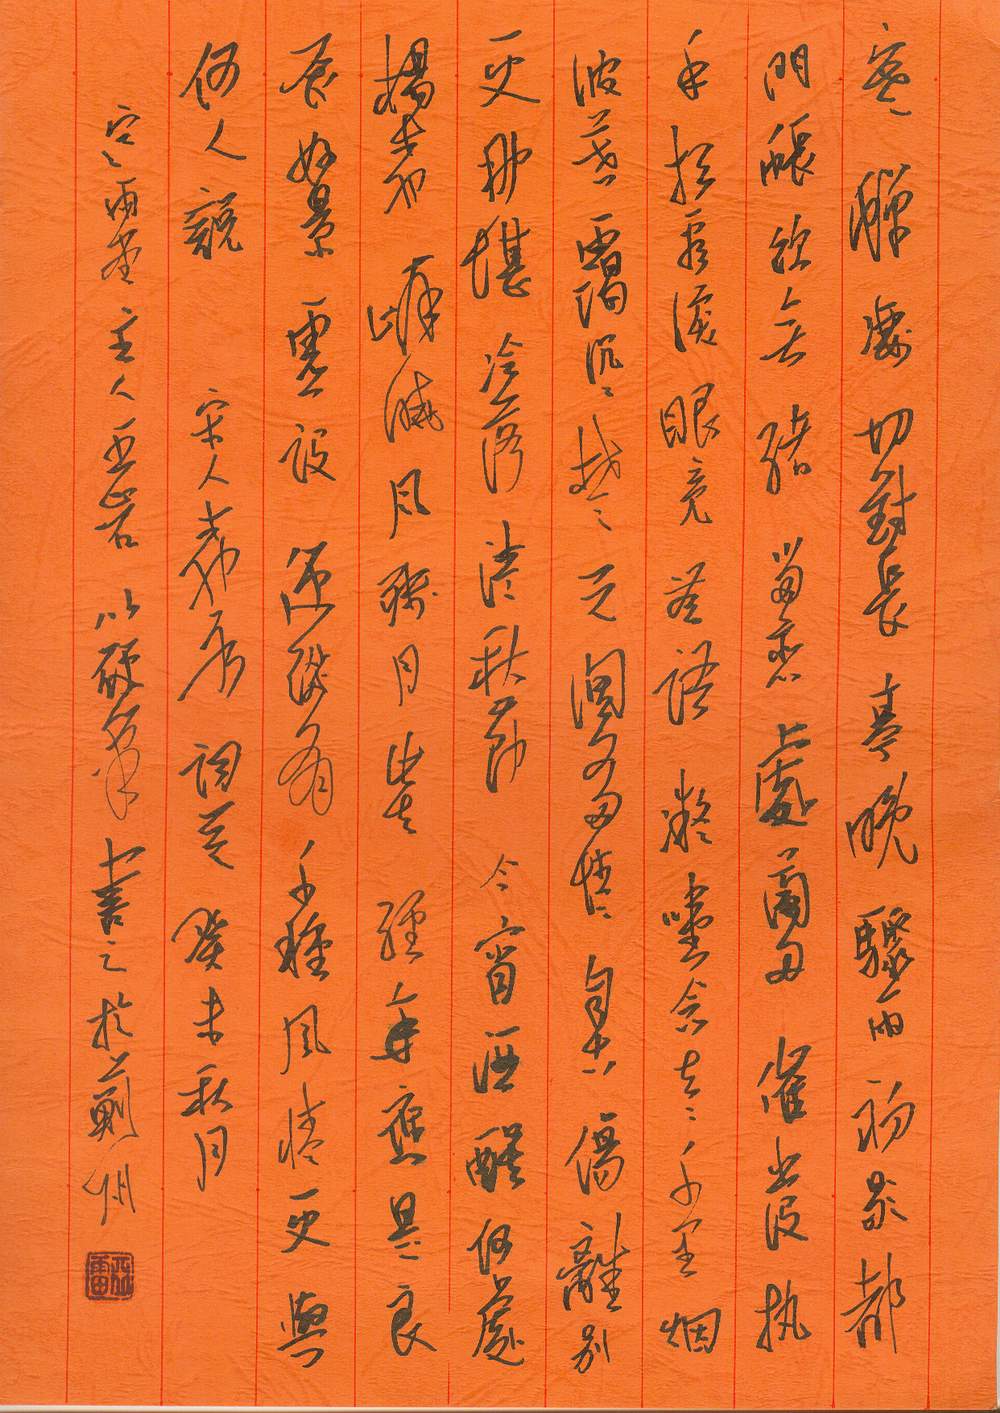 寒蟬凄切對長亭晚驟雨初歇都
門帳飲無緒留戀處蘭舟催發執
手相看淚眼竟無語凝噎念去々千里烟
波暮靄沉々楚天闊多情自古傷離别
更那堪冷落清秋節今宵酒醒何處
楊柳岸曉風殘月此去經年應是良
辰好景虛設便縱有千種風情更與
何人說 宋人柳永詞 癸未秋月
雨堂主人 以硬筆書之於薊州